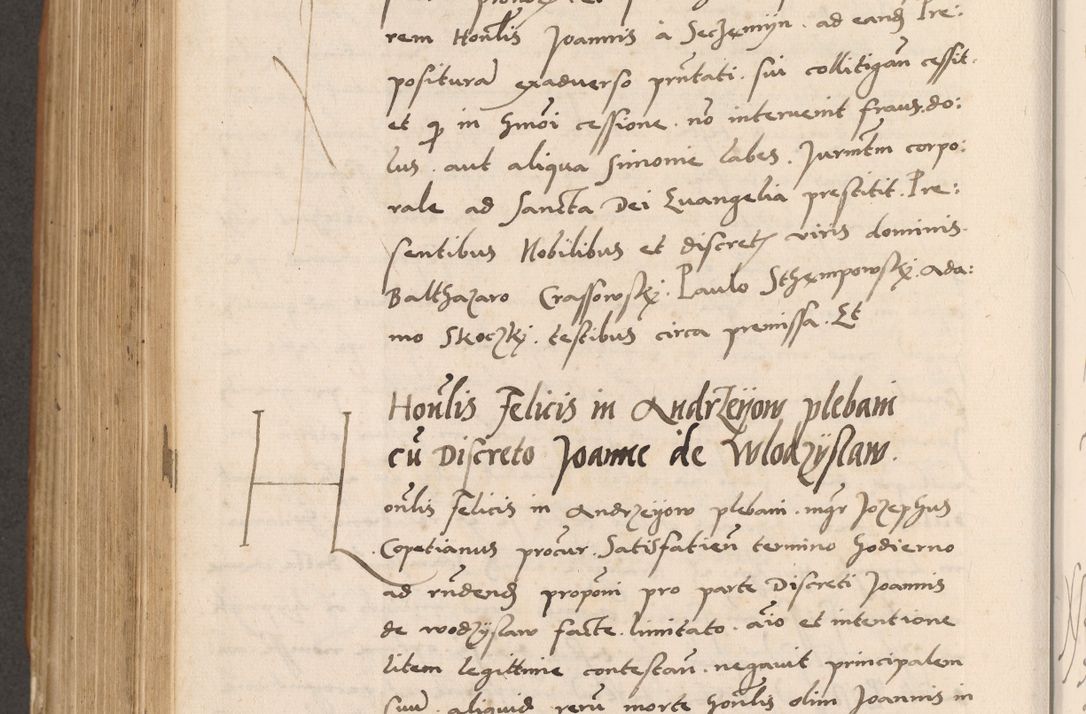 rem Honlis Joannis à Sechemyn. ad eand Pre:
posituram exaduerso pntati. sui collitigan cessit.
et q in hmoi cessione. no interuenit fraus. do:
lus. aut aliqua Simonie labes. Jurmtm corpo:
rale ad Sancta Dei Euangelia prestitit. Pre:
sentibus Nobilibus et discret viris dominis.
Balthazaro Crassowsky. Paulo Sthempowsky. Ada:
mo Skoczky. testibus circa premissa. Et
Honlis Felicis in Andrzeyow plebani
cu Discreto Joanne de Wlodzyslaw.
Honlis Felicis in Andrzeyow plebani. mgr Jozephus
Copetianus procur. Satisfatien termino hodierno
ad rndend proponi pro parte Discreti Joannis
de Wodzyslaw facte. limitato. aio et intentione
litem legittime contestan. negauit principalem
suu aliquid reru morte honlis olim Joannis in